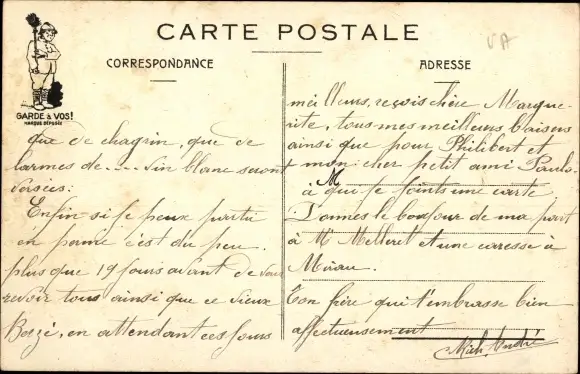 CARTE POSTALE
CORRESPONDANCE
ADRESSE
GARDE à VOS!
MARQUE DÉPOSÉE
que de chagrin, que de
larmes de.... vin blanc seront
versées:
Enfin si je peux partir
en perme c'est du peu.
plus que 19 jours avant de vous
revoir tous ainsi que ce vieux
en attendant ces jours
meilleurs, reçois chère Margue-
rite, tous mes meilleurs baisers
ainsi que pour Philibert et
mon cher petit ami Paulo.
à M que je joints une carte
Donnes le bonjour de ma part
à Mr Melleret et une caresse à
Mirau.
Ton frère qui t'embrasse bien
affectueusement
André